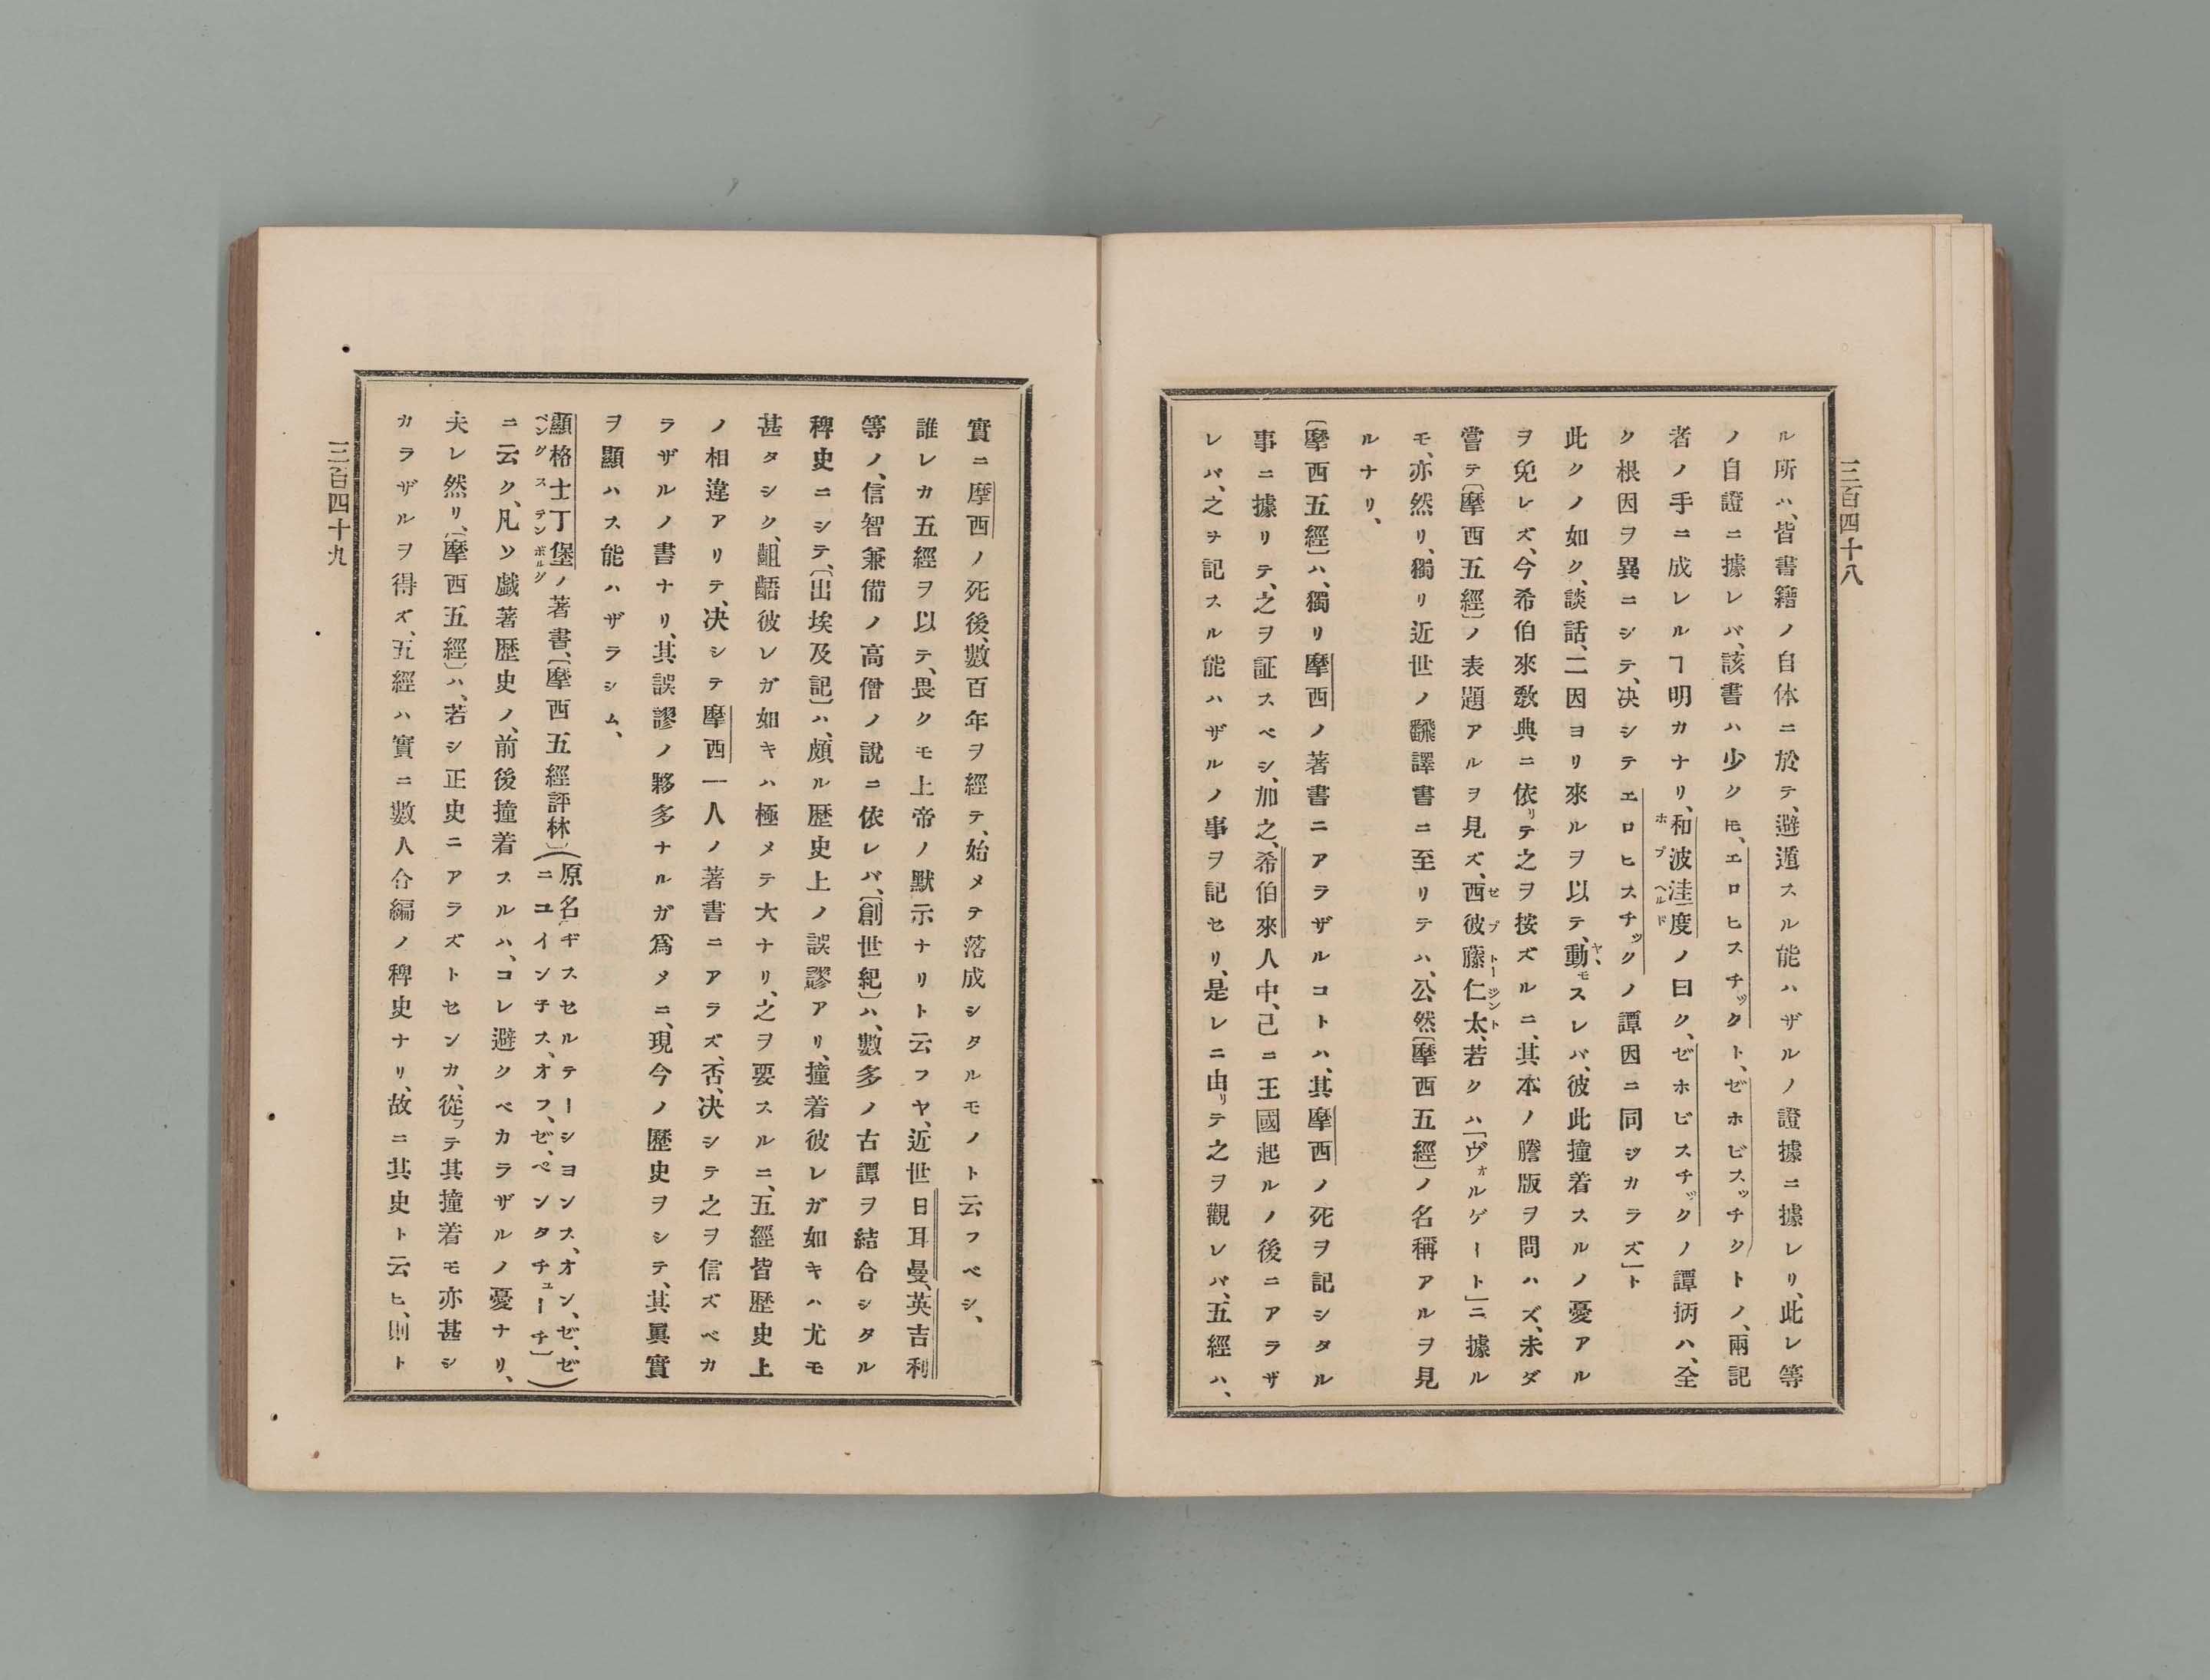 三百四十八
ル所ハ、皆書籍ノ自体ニ於テ、避遁スル能ハザルノ證據ニ據レリ、此レ等
ノ自證ニ據レバ、該書ハ少クモ、エロヒスチックト、ゼホビスッチクトノ、兩記
者ノ手ニ成レルヿ明カナリ、和波洼度ノ曰ク、ゼホビスチックノ譚柄ハ、全
ホブヘルド
ク根因ヲ異ニシテ、决シテエロヒスチックノ譚因ニ同ジカラズ」ト
此クノ如ク、談話、二因ヨリ來ルヲ以テ、動モスレバ、彼此撞着スルノ憂アル
ヤヽ
ヲ免レズ、今希伯來敎典ニ依リテ之ヲ按ズルニ、其本ノ謄版ヲ問ハズ、未ダ
嘗テ〔摩西五經〕ノ表題アルヲ見ズ、西彼藤仁太、若クハ「ヴォルゲート」ニ據ル
ゼプトージント
モ、亦然リ、獨リ近世ノ飜譯書ニ至リテハ、公然〔摩西五經〕ノ名稱アルヲ見
ルナリ、
〔摩西五經〕ハ、獨リ摩西ノ著書ニアラザルコトハ、其摩西ノ死ヲ記シタル
事ニ據リテ、之ヲ証スベシ、加之、希伯來人中、己ニ王國起ルノ後ニアラザ
レバ、之ヲ記スル能ハザルノ事ヲ記セリ、是レニ由リテ之ヲ觀レバ、五經ハ、
實ニ摩西ノ死後、數百年ヲ經テ、始メテ落成シタルモノト云フベシ、
誰レカ五經ヲ以テ、畏クモ上帝ノ默示ナリト云フヤ、近世日耳曼、英吉利
等ノ、信智兼備ノ高僧ノ說ニ依レバ、〔創世紀〕ハ、數多ノ古譚ヲ結合シタル
稗史ニシテ、〔出埃及記〕ハ、頗ル歴史上ノ誤謬アリ、撞着彼レガ如キハ尤モ
甚タシク、齟齬彼レガ如キハ極メテ大ナリ、之ヲ要スルニ、五經皆歴史上
ノ相違アリテ、决シテ摩西一人ノ著書ニアラズ、否、决シテ之ヲ信ズベカ
ラザルノ書ナリ、其誤謬ノ夥多ナルガ爲メニ、現今ノ歷史ヲシテ、其眞實
ヲ顯ハス能ハザラシム、
顯格士丁堡ノ著書、〔摩西五經評林〕(原名「ヂスセルテーシヨンス、オン、ゼ、ゼ
ニユインチス、オフ、ゼ、ペンタチューチ」)
ヘングステンボルグ
ニ云ク、凡ソ戯著歴史ノ、前後撞着スルハ、コレ避クベカラザルノ憂ナリ、
夫レ然リ、〔摩西五經〕ハ、若シ正史ニアラズトセンカ、從フテ其撞着モ亦甚シ
カラザルヲ得ズ、五經ハ實ニ數人合編ノ稗史ナリ、故ニ其史ト云ヒ、則ト
三百四十九